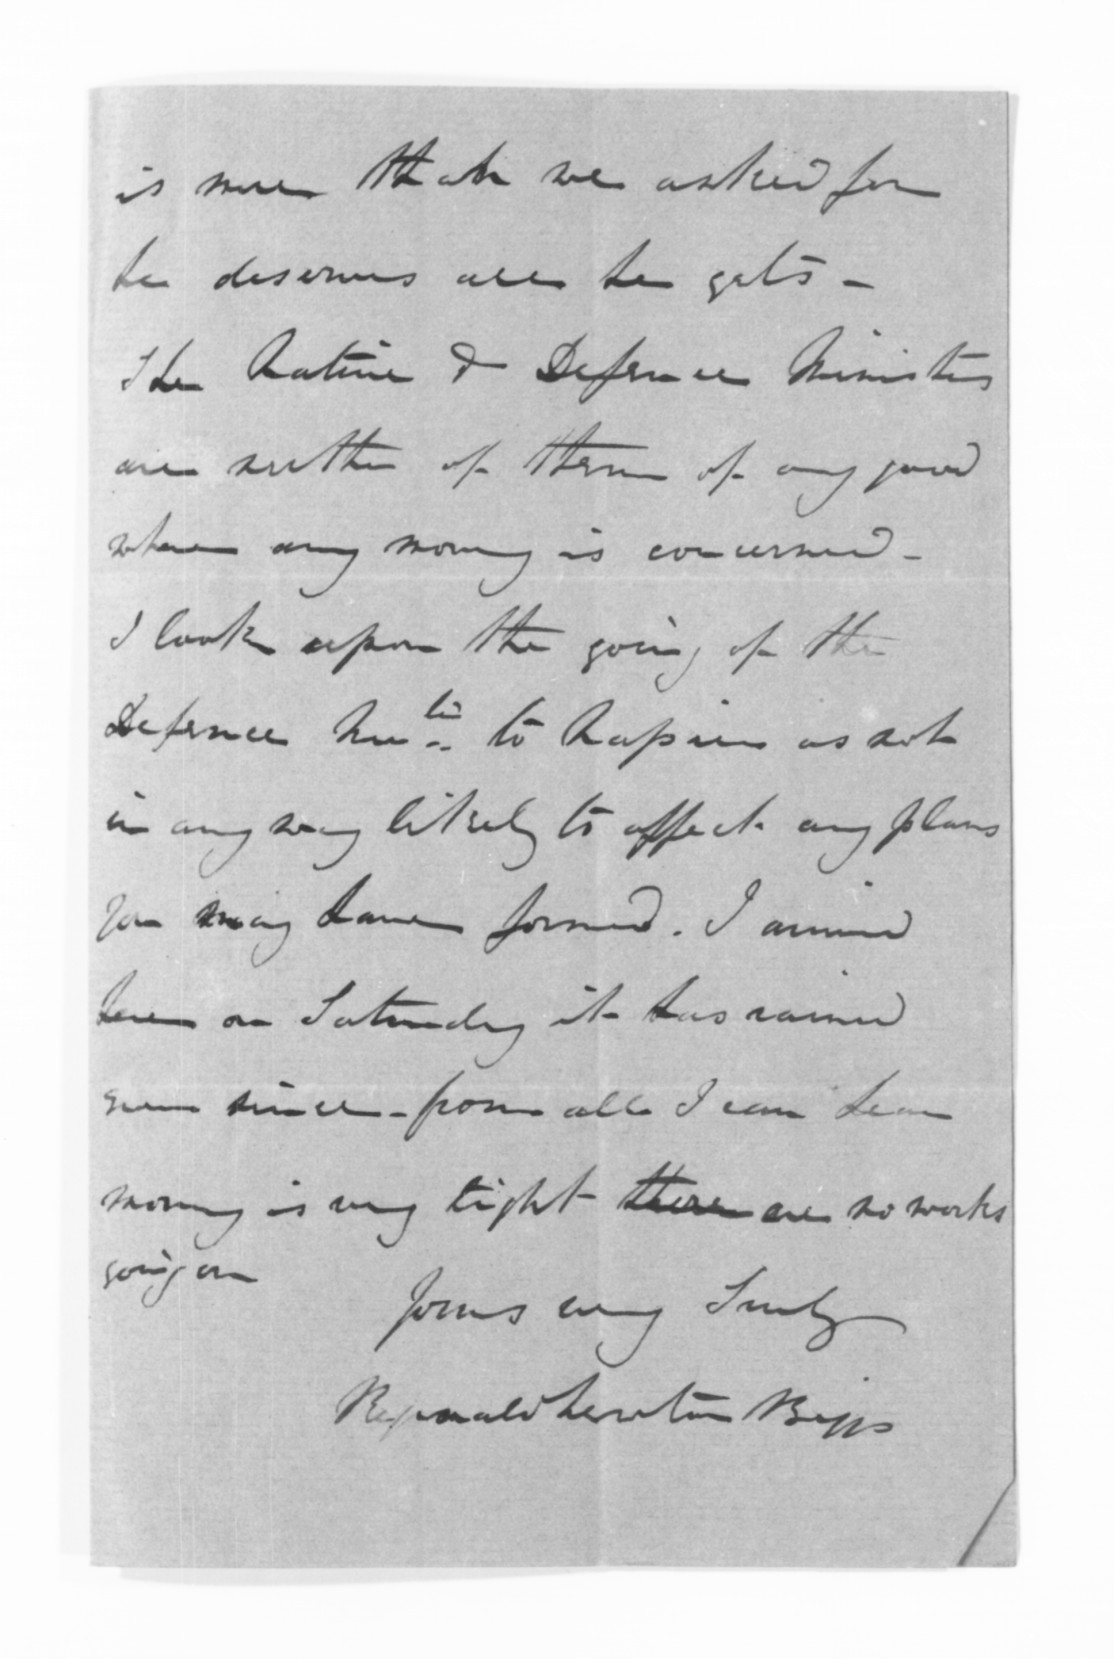 is more than we asked for
he deserves all he gets -
The Native & Defence Ministers
are neither of them of any good
where any money is concerned -
I look upon the going of the
Defence to Napier as not
in any way likely to affect any plans
you may have formed. I arrived
here on Saturday it has rained
ever since - from all I can hear
money is very tight there are no works
going on
Yours very Truly
Reginald Newton Biggs